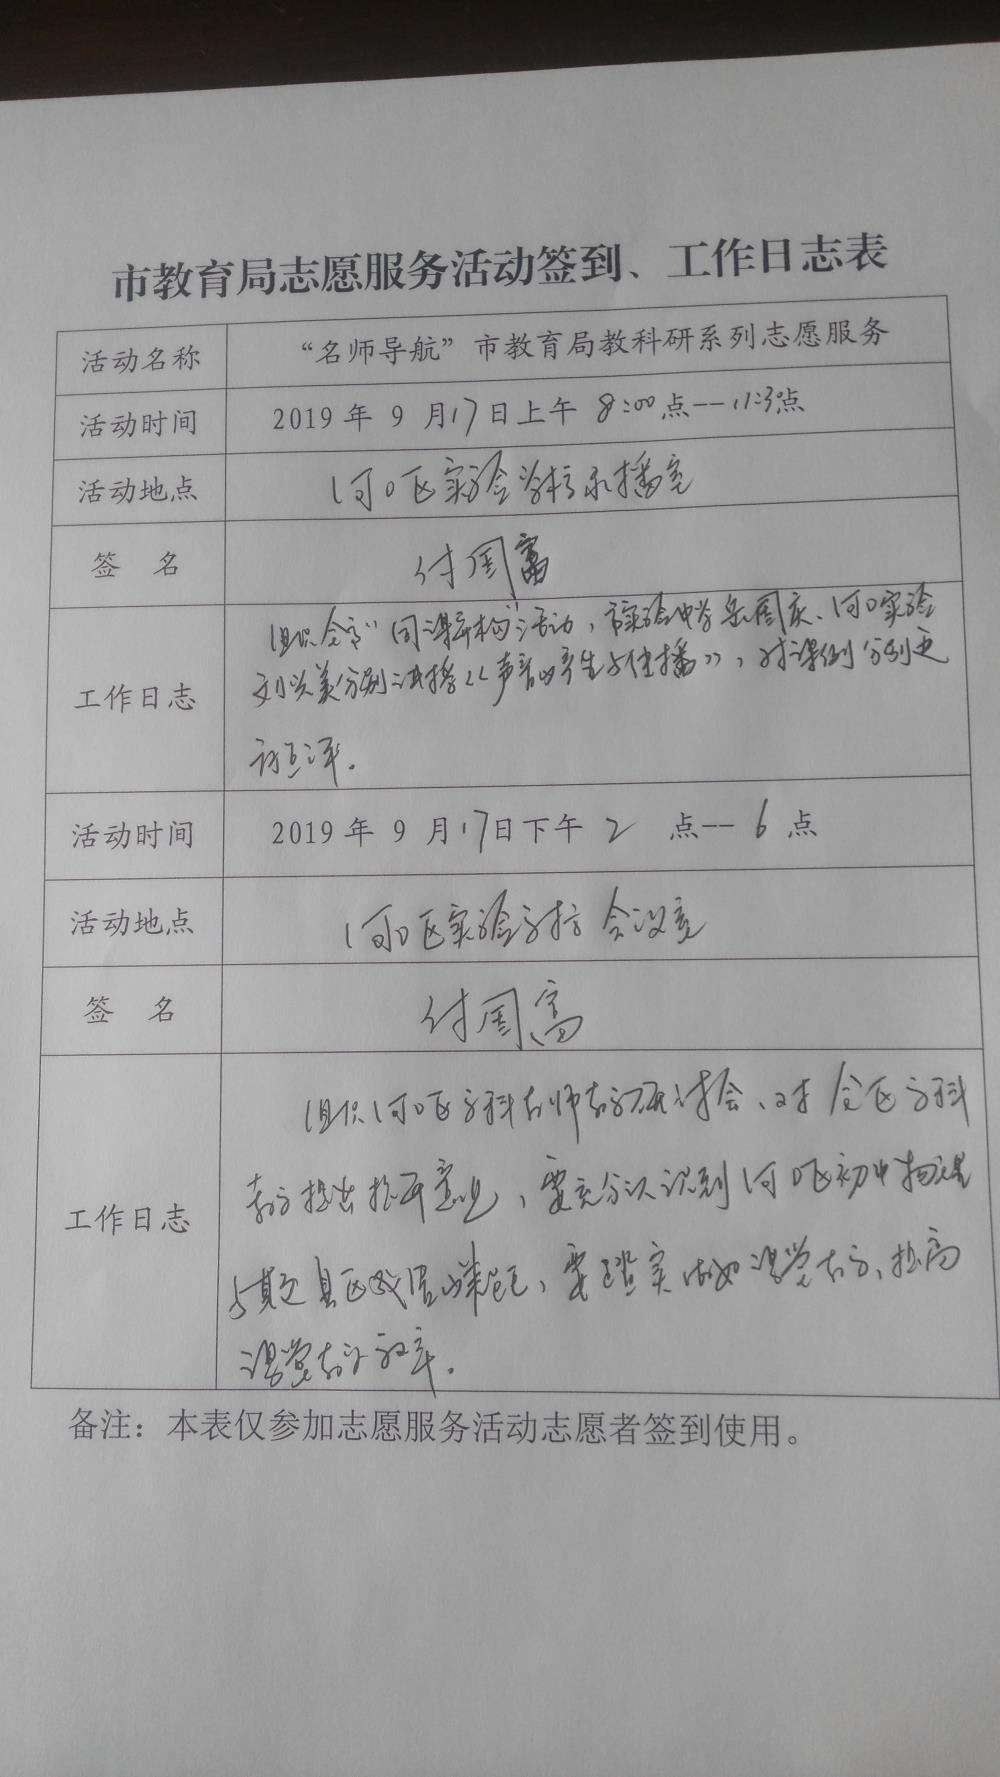 市教育局志愿服务活动签到、工作日志表
活动名称 “名师导航”市教育局教科研系列志愿服务
活动时间 2019 年 9 月17日上午 8:00点--11:30点
活动地点 河口区实验学校录播室
签 名 付国富
组织全市“同课异构”活动，市实验中学岳国庆、河口实验
工作日志 刘兴美分别讲授《声音的产生与传播》，对课例分别
评。
活动时间 2019 年 9 月17日下午 2 点-- 6 点
活动地点 河口区实验学校会议室
签 名 付国富
组织河口区学科教师教学研讨会、对全区学科
工作日志 教学提出指导意见，要充分认识到河口区初中物理
与其它县区成绩的差距，要踏实做好课堂教学、提高
课堂教学效率。
备注：本表仅参加志愿服务活动志愿者签到使用。